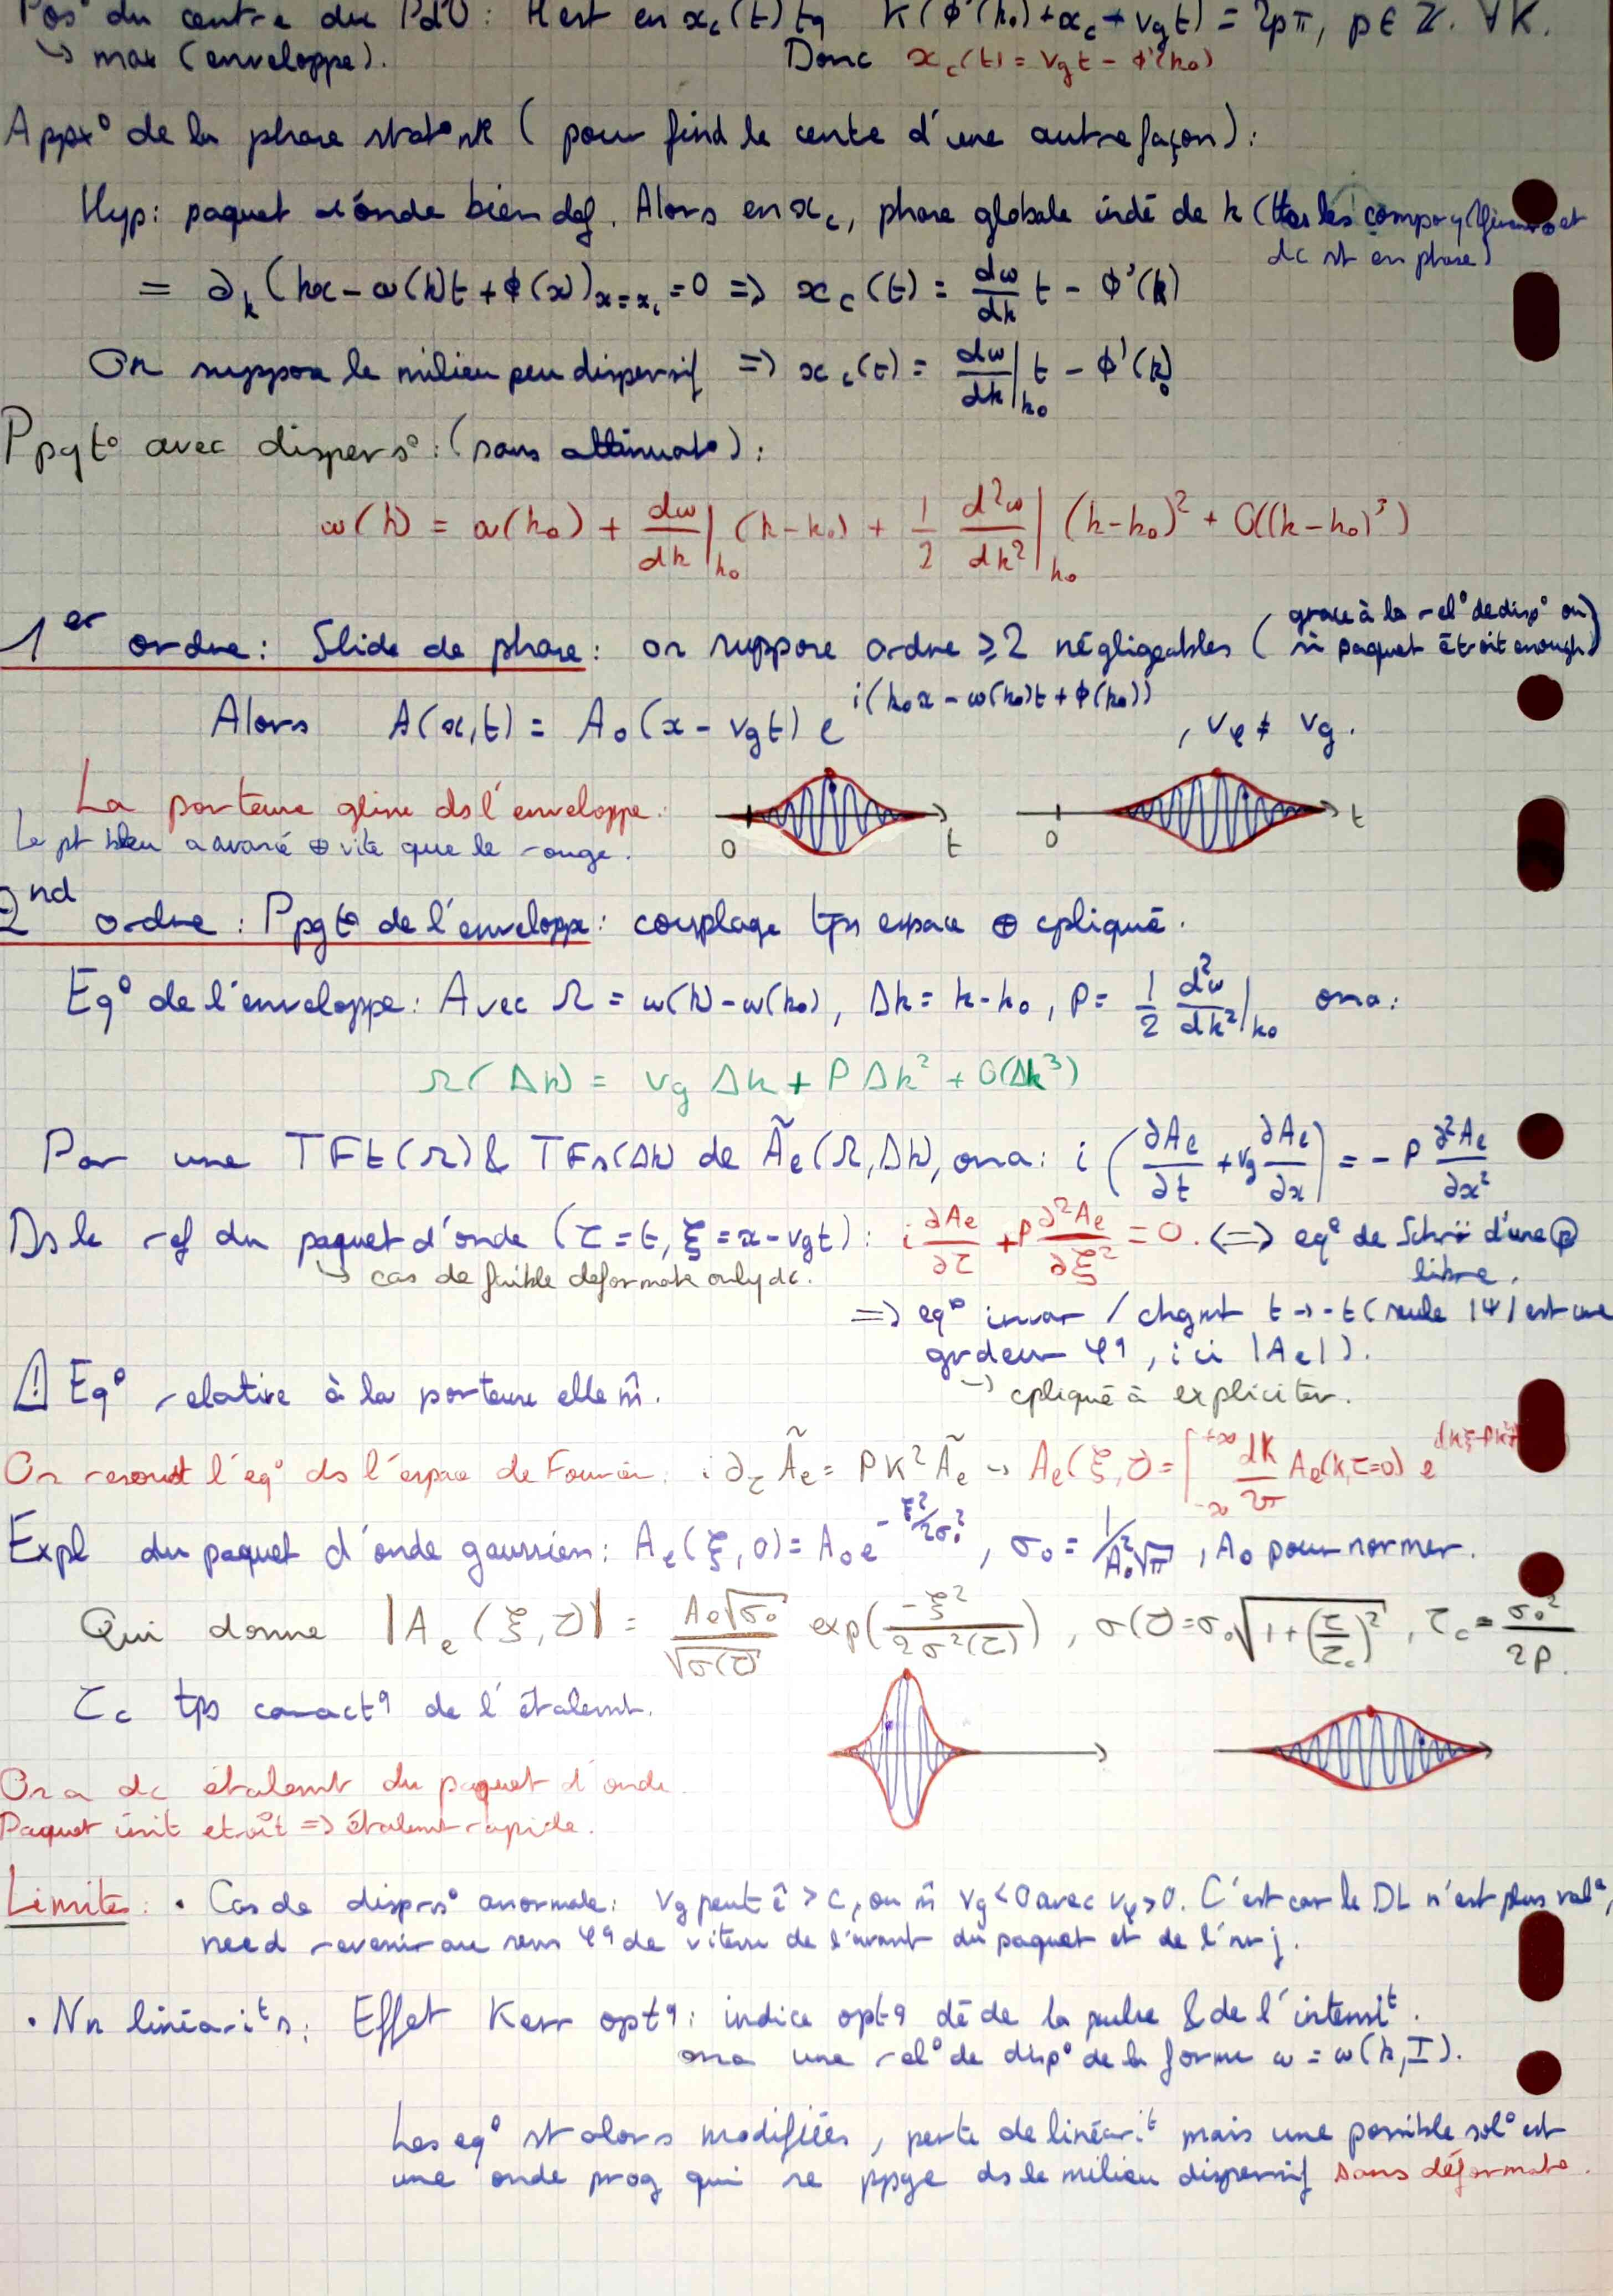 Pos° du centre du PdO : Il est en x_c(t) tq K(ϕ'(k₀)+x_c+v_g t) = 2pπ, p ∈ ℤ. ∀K.
↳ max (enveloppe). Donc x_c(t) = v_g t - ϕ'(k₀)
Appx° de la phase stat° nR ( pour find le cente d'une autre façon) :
Hyp : paquet d'onde bien def. Alors en x_c, phase globale indé de k (ttes les compo y et
dc st en phase)
= ∂_k (kx - ω(k)t + ϕ(x))_{x=x_c} = 0 => x_c(t) = dω/dk t - ϕ'(k)
On suppose le milieu peu dispersif => x_c(t) = dω/dk|_{k₀} t - ϕ'(k₀)
Ppgt° avec dispers° : (sans atténuat°) :
ω(k) = ω(k₀) + dω/dk|_{k₀} (k-k₀) + 1/2 d²ω/dk²|_{k₀} (k-k₀)² + O((k-k₀)³)
1er ordre : Slide de phase : on suppose ordre ≥ 2 négligeables ( grace à la rel° de disp° ou
si paquet étroit enough)
Alors A(x,t) = A₀(x - v_g t) e^{i(k₀x - ω(k₀)t + ϕ(k₀))} , v_φ ≠ v_g.
La porteuse glisse ds l'enveloppe :
Le pt bleu a avancé ⊕ vite que le rouge.
0 t 0 t
2nd ordre : Ppgt° de l'enveloppe : couplage tps espace ⊕ cpliqué.
Eq° de l'enveloppe : Avec Ω = ω(k)-ω(k₀), Δk = k-k₀, P = 1/2 d²ω/dk²|_{k₀} on a :
Ω(Δk) = v_g Δk + P Δk² + O(Δk³)
Par une TFt(Ω) & TFs(Δk) de Ã_e(Ω,Δk), on a : i (∂A_e/∂t + v_g ∂A_e/∂x) = - P ∂²A_e/∂x²
Ds le ref du paquet d'onde (τ = t, ξ = x - v_g t) : i ∂A_e/∂τ + P ∂²A_e/∂ξ² = 0. <=> eq° de Schrö d'une ⓟ
libre.
↳ cas de faible deformat° only dc.
=> eq° invar / chgmt t → -t (seule |Ψ| est une
grdeur φq, ici |A_e|).
→ cpliqué à expliciter.
⚠ Eq° relative à la porteuse elle m̂.
On resout l'eq° ds l'espace de Fourier : i ∂_τ Ã_e = PK² Ã_e → A_e(ξ,τ) = ∫_{-∞}^{+∞} dK/2π A_e(K,τ=0) e^{i(Kξ-PK²τ)}
Expl du paquet d'onde gaussien : A_e(ξ,0) = A₀ e^{-ξ²/2σ₀²}, σ₀ = 1/A₀²√π , A₀ pour normer.
Qui donne |A_e(ξ,τ)| = A₀√σ₀/√σ(τ) exp(-ξ²/2σ²(τ)) , σ(τ) = σ₀√(1+(τ/τ_c)²) , τ_c = σ₀²/2P.
τ_c tps caractq de l'étalemt.
On a dc étalemt du paquet d'onde.
Paquet init étroit => étalemt rapide.
Limite : • Cas de dispers° anormale : v_g peut ê > c, ou m̂ v_g < 0 avec v_φ > 0. C'est car le DL n'est plus valᵉ,
need revenir au sens φq de vitesse de l'avant du paquet et de l'nrj.
• Nn linéarités : Effet Kerr optq : indice optq dé de la pulse & de l'intensité.
on a une rel° de disp° de la forme ω = ω(k,I).
Les eq° st alors modifiées, perte de linéarité mais une possible sol° est
une onde prog qui se ppge ds le milieu dispersif sans déformat°.